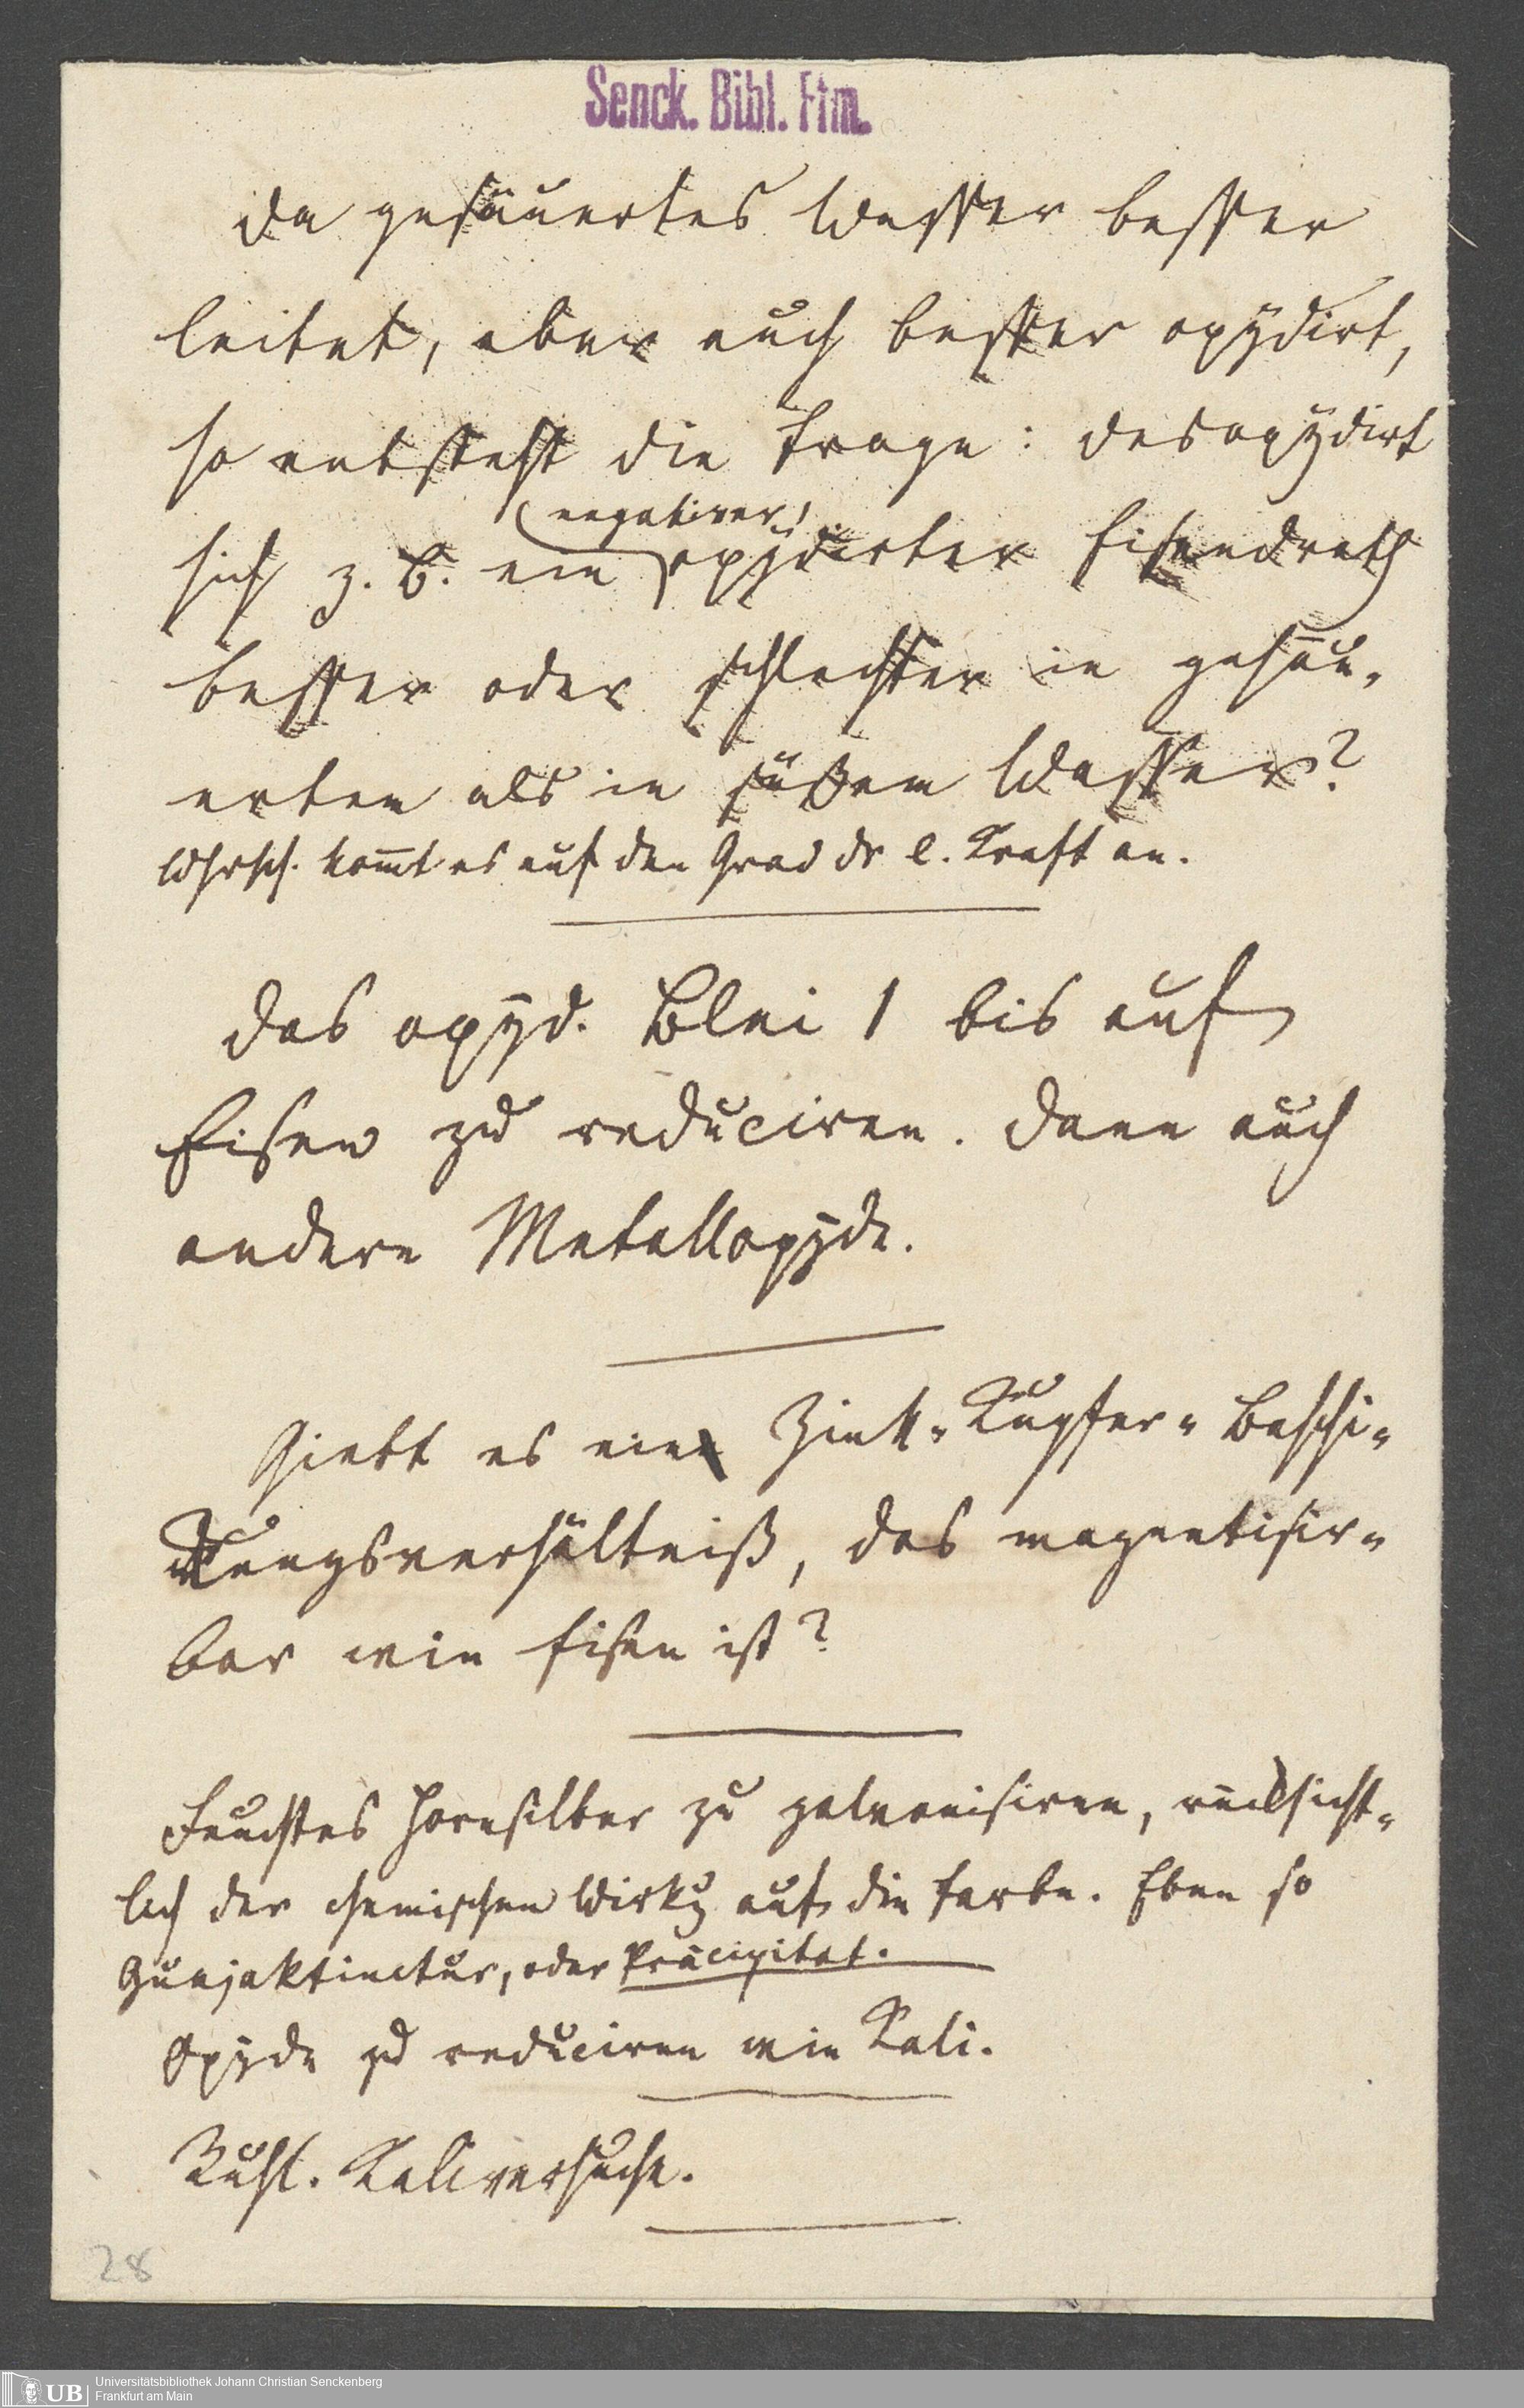 Senck. Bibl. Ffm.
Da gesäuertes Wasser besser
leitet, aber auch besser oxydirt,
so entsteht die Frage: desoxydirt
negativer
sich z. B. ein oxydirter Eisendrath
besser oder schlechter in gesäu-
erten als in süßem Wasser?
Whrsch. kom̅t es auf den Grad dr e. Kraft an.
Das oxyd. Blei 1 bis auf
Eisen zu reduciren. Dann auch
andere Metalloxyde.
Giebt es ein Zink-Kupfer-Beschi-
kungsverhältniß, das magnetisir-
bar wie Eisen ist?
Feuchtes Hornsilber zu galvanisiren, rücksicht-
lich der chemischen Wirkg auf die Farbe. Eben so
Guajaktinctur, oder Präcipitat.
Oxyde zu reduciren wie Kali.
Kaliversuche.
28
UB
Universitätsbibliothek Johann Christian Senckenberg
Frankfurt am Main